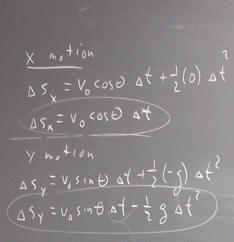 X motion
ΔSₓ = V₀ cosθ Δt + ½(0) Δt²
ΔSₓ = V₀ cosθ Δt
Y motion
ΔSy = V₀ sinθ Δt + ½(-g) Δt²
ΔSy = V₀ sinθ Δt - ½ g Δt²